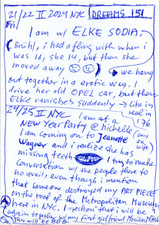 21/22 II 2024 NYC DREAMS 151
Fri
I am w/ ELKE SODIA;
I had a fling with when I
was 16, she 14, but then she
moved away
we hang
out together in a erotic way. I
drive her old OPEL car, but then
ELKE vanishes suddenly → Cito in
24/25 II NYC I am at a 1.76
New Year Party @ Michelle
I am coming on to Jeanette
Wagner and I realize she has
missing teeth I try to make
Conversation w/ the people there to
no avail, even though I mention
that someone destroyed my ART PIECE
on the roof of the Metropolitan Museum
here in NYC. I mention that I will be
again my first girlfriend